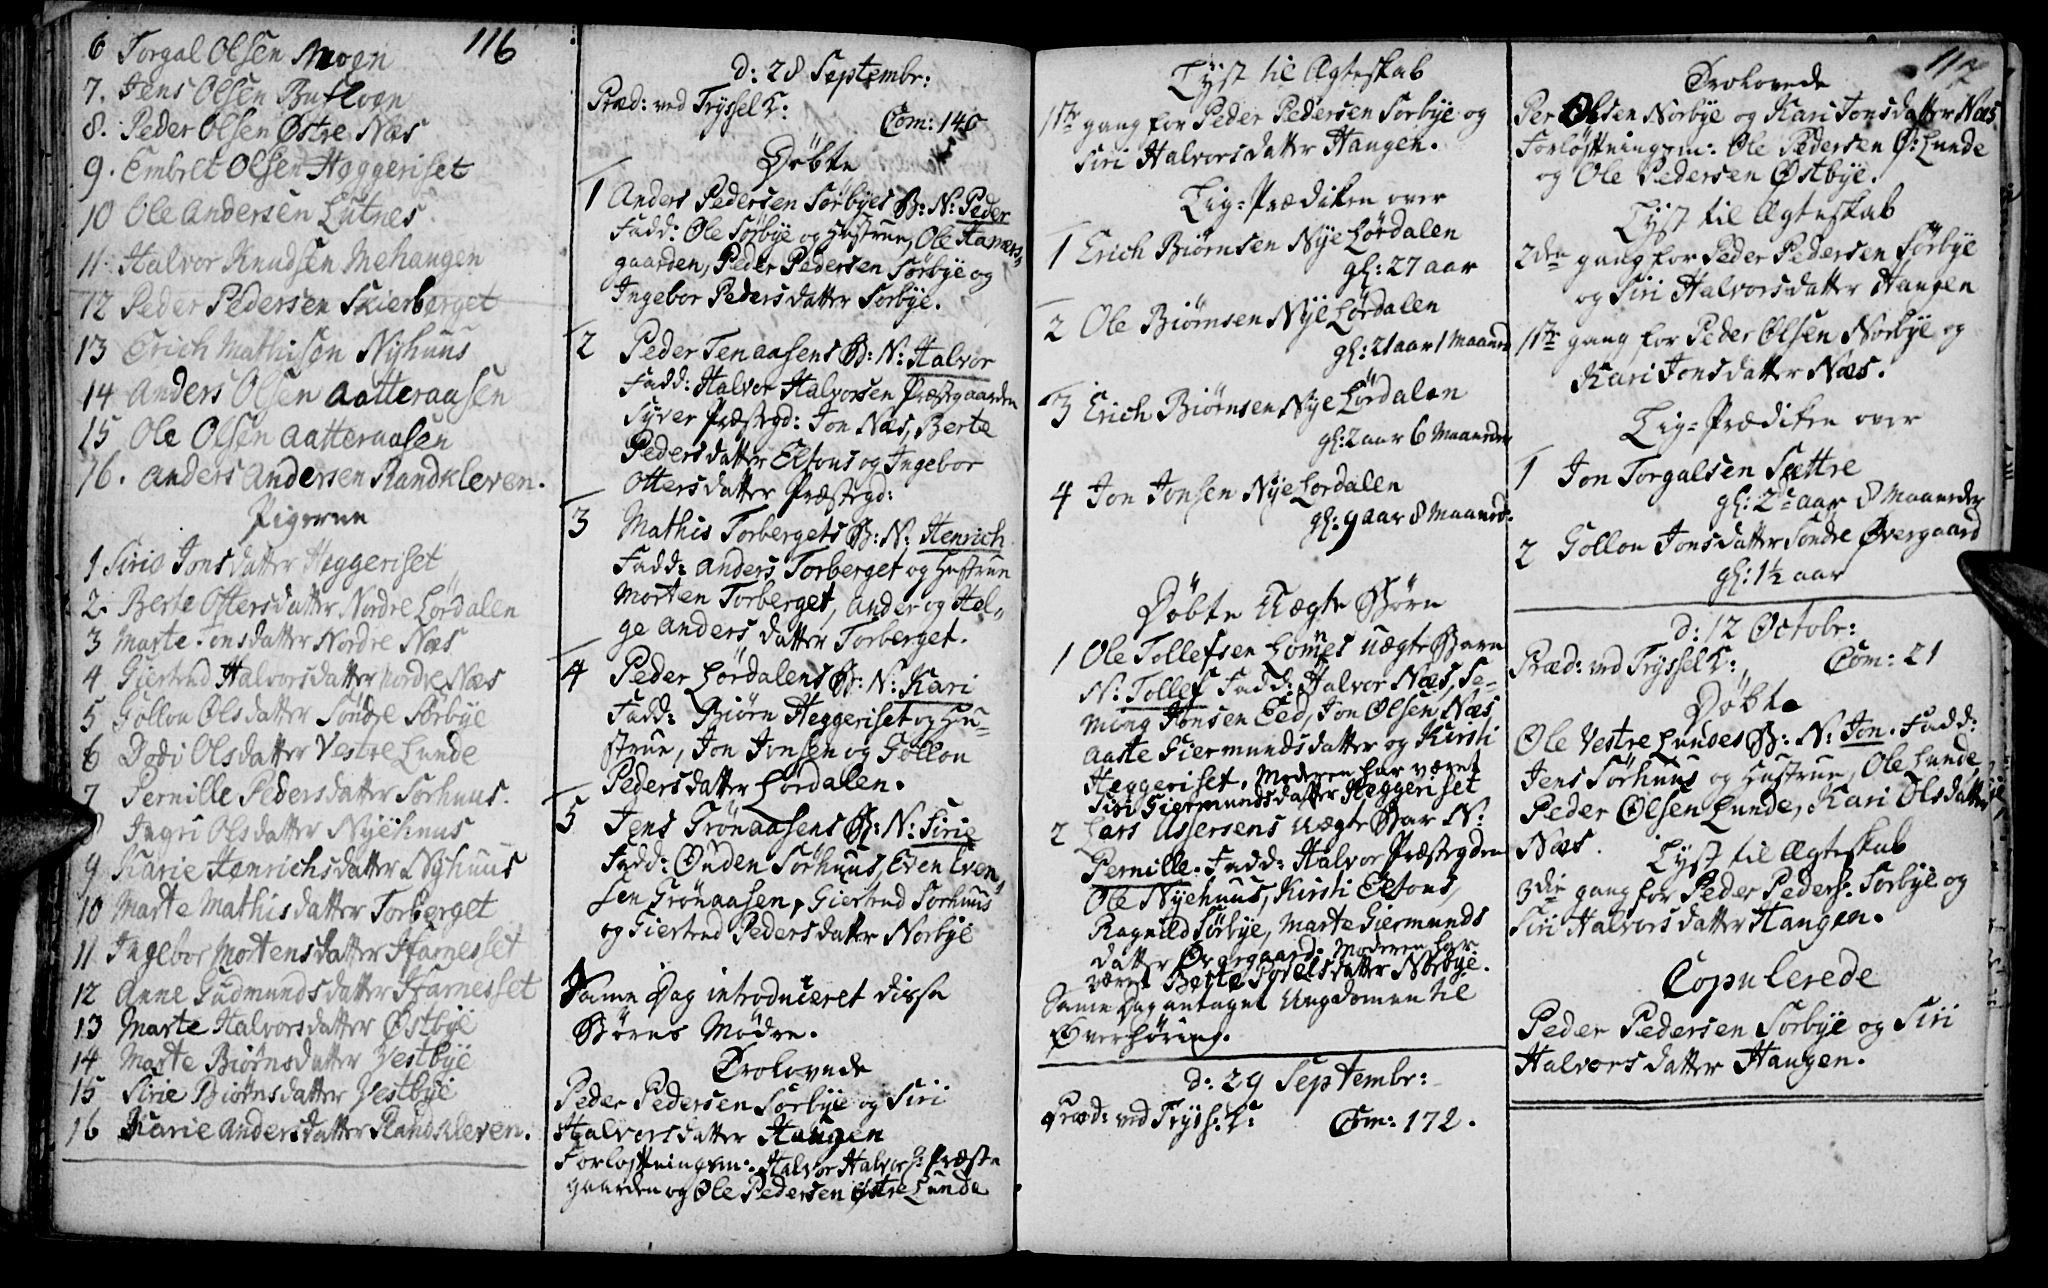 116
6 Torgal Olsen Moen
7. Jens Olsen Bufloen
8. Peder Olsen Østre Næs
9. Embret Olsen Heggeriset
10 Ole Andersen Lutnes.
11. Halvor Knudsen Mehaugen
12 Peder Pedersen Skierberget
13 Erich Mathisen Nyhuus
14 Anders Olsen Aatteraasen
15 Ole Olsen Aatteraasen
16. Anders Andersen Randkleven.
Pigerne
1 Sirie Jonsdatter Heggeriset
2. Berte Ottersdatter Nordre Lördalen
3 Marte Jonsdatter Nordre Næs
4 Giertrud Halvorsdatter Nordre Næs
5 Gollou Olsdatter Söndre Sörbye
6 Dodi Olsdatter Vestre Lunde
7 Pernille Pedersdatter Sörhuus.
8 Ingri Olsdatter Nyehuus
9 Karie Henrichsdatter Nyhuus
10 Marte Mathisdatter Torberget
11 Ingebor MortensdatterHarnesset
12 Anne Gudmundsdatter Harnesset
13 Marte Halvorsdatter Østbye
14 Marte Biörnsdatter Vestbye
15 Sirie Biörnsdatter Vestbye
16 Karie Andersdatter Randkleven.
d: 28 Septembr:
Præd: ved Tryssel K: Com: 140
Döbte
1 Anders Pedersen Sörbyes B: N: Peder
Fadd: Ole Sörbye og Hustrue, Ole Hammers-
gaarden, Peder Pedersen Sörbye og
Ingebor Pedersdatter Sorbye.
2 Peder Tenaasens B: N: Halvor
Fadd: Halvor Halvorsen Præstgaarden
Syver Præstegd: Jon Næs, Berte
Pedersdatter Eltons og Ingebor
Ottersdatter Præstegd:
3 Mathis Torbergets B: N: Henrich
Fadd: Anders Torberget og Hustrue
Morten Torberget, Ander og Hel-
ge Anders datter Torberget.
4 Peder Lördalens B: N: Kari
Fadd: Biörn Heggeriset og Hu-
strue, Jon Jonsen og Gollou
Pedersdatter Lordalen.
5 Jens Grönaasens B: N: Sirie
Fadd: Ouden Sörhuus, Even Even-
sen Grönaasen, Giertrud Sorhuus
og Giertrud Pedersdatter Norbye
Same Dag introduceret disse
Börns Mödre.
Trolovede
Peder Pedersen Sörbye og Siri
Halvorsdatter Haugen
Forlöftningsm: Halvor Halvors: Præste
gaarden og Ole Pedersen Østre Lunde
Lyst til Ægteskab
1ste gang for Peder Pedersen Sorbye og
Siri Halvorsdatter Haugen.
Lig-Prædiken over
1 Erich Biörnsen Nye Lördalen
gl: 27 aar
2 Ole Biörnsen Nye Lördalen
gl: 21 aar 1 Maaned
3 Erich Biörnsen Nye Lördalen
gl: 2 aar 6 Maaneder
4 Jon Jonsen Nye Lordalen
gl: 9 aar 8 Maaned:
Döbte Uægte Börn
1 Ole Tollefsen Lomes uægte Barn
N: Tollef Fadd: Halvor Næs, Se-
ming Jonsen Eed, Jon Olsen Næs
Aaste Giermundsdatter og Kirsti
Heggeriset. Moderen har været
Siri Giermundsdatter Heggeriset
2 Lars Assersens uægte Bar N:
Pernille. Fadd: Halvor Præstegden
Ole Nyehuus, Kirsti Eltons,
Ragnild Sörbye, Marte Giermunds
datter Øvergaard. Moderen har
været Berte Povelsdatter Norbye.
Same Dag antaget Ungdomen til
Overhöring.
d: 29 Septembr:
Præd: ved Tryss: K: Com: 172.
117
Trolovede
Per Olsen Norbye og Kari Jonsdatter Næs
Forlöftningsm: Ole Pedersen Ø: Lunde
og Ole Pedersen Østbye.
Lyst til Ægteskab
2den gang for Peder Pedersen Sörbye
og Siri Halvorsdatter Haugen
1ste gang for Peder Olsen Norbye og
Kari Jonsdatter Næs.
Lig-Prædiken over
1 Jon Torgalsen Sættre
gl: 2 aar 8 Maaneder
2 Gollou Jonsdatter Söndre Øvergaard
gl: 1½ aar
d: 12 Octobr:
Præd: ved Tryssel K: Com: 21
Döbte
Ole Vestre Lundes B: N: Jon. Fadd:
Jens Sörhuus og Hustrue, Ole Lunde,
Peder Olsen Lunde, Kari Olsdatter
Næs.
Lyst til Ægteskab
3die gang for Peder Peders: Sorbye og
Siri Halvorsdatter Haugen.
Copulerede
Peder Pedersen Sorbye og Siri
Halvorsdatter Haugen.